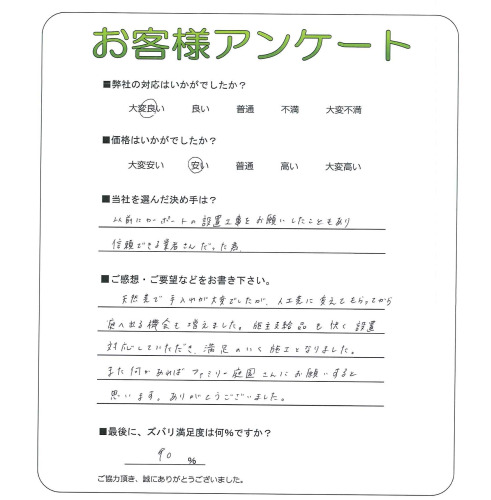 お客様アンケート
■弊社の対応はいかがでしたか？
大変良い 良い 普通 不満 大変不満
■価格はいかがでしたか？
大変安い 安い 普通 高い 大変高い
■当社を選んだ決め手は？
以前にカーポートの設置工事をお願いしたこともあり
信頼できる業者さんだった為.
■ご感想・ご要望などをお書き下さい。
天然芝で手入れが大変でしたが、人工芝に変えてもらってから
庭へ出る機会も増えました。施主支給品も快く設置
対応していただき、満足のいく施工となりました。
また何かあればファミリー庭園さんにお願いすると
思います。ありがとうございました。
■最後に、ズバリ満足度は何%ですか？
90 %
ご協力頂き、誠にありがとうございました。